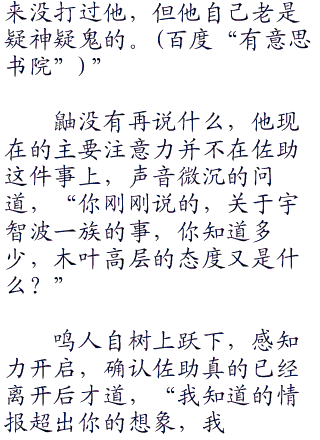 来没打过他，但他自己老是
疑神疑鬼的。(百度“有意思
书院”)”
鼬没有再说什么，他现
在的主要注意力并不在佐助
这件事上，声音微沉的问
道，“你刚刚说的，关于宇
智波一族的事，你知道多
少，木叶高层的态度又是什
么？”
鸣人自树上跃下，感知
力开启，确认佐助真的已经
离开后才道，“我知道的情
报超出你的想象，我